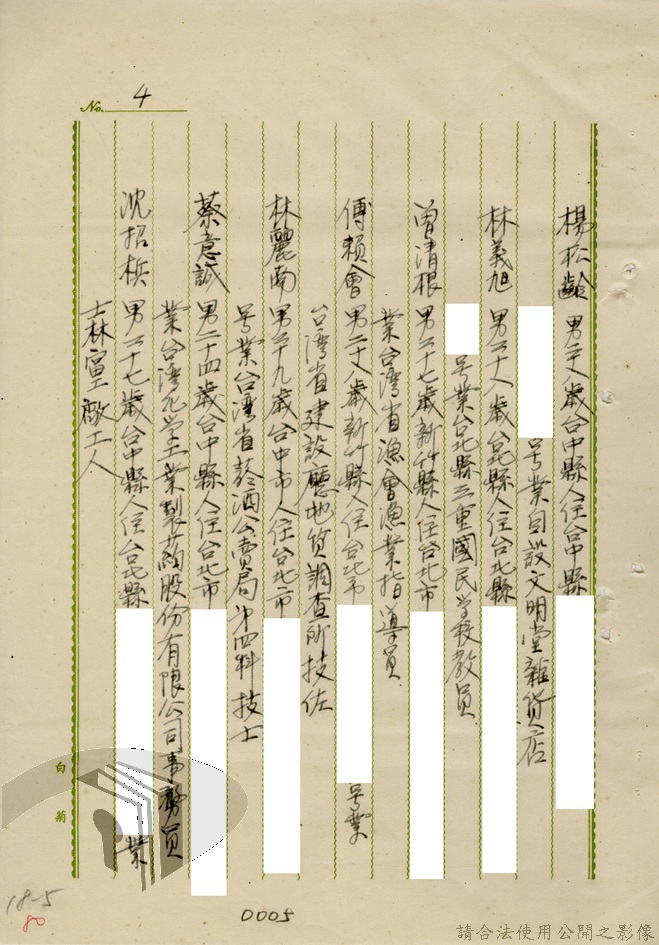 No. 4
楊松齡 男二十八歲台中縣人住台中縣
号業自設文明堂雜貨店
林義旭 男二十八歲台北縣人住台北縣
号業台北縣三重國民学校教員
曾清根 男二十七歲新竹縣人住台北市
業台湾省漁會漁業指導員
傅賴會 男二十八歲新竹縣人住台北市 号業
台湾省建設廳地質調查所技佐
林麗南 男二十九歲台中市人住台北市
号業台湾省菸酒公賣局第四科技士
蔡意誠 男二十四歲台中縣人住台北市
業台湾化学工業製葯股份有限公司事務員
沈招 男二十七歲台中縣人住台北縣 業
士林電工廠工人
白菊
18-5
80
0005
請合法使用公開之影像